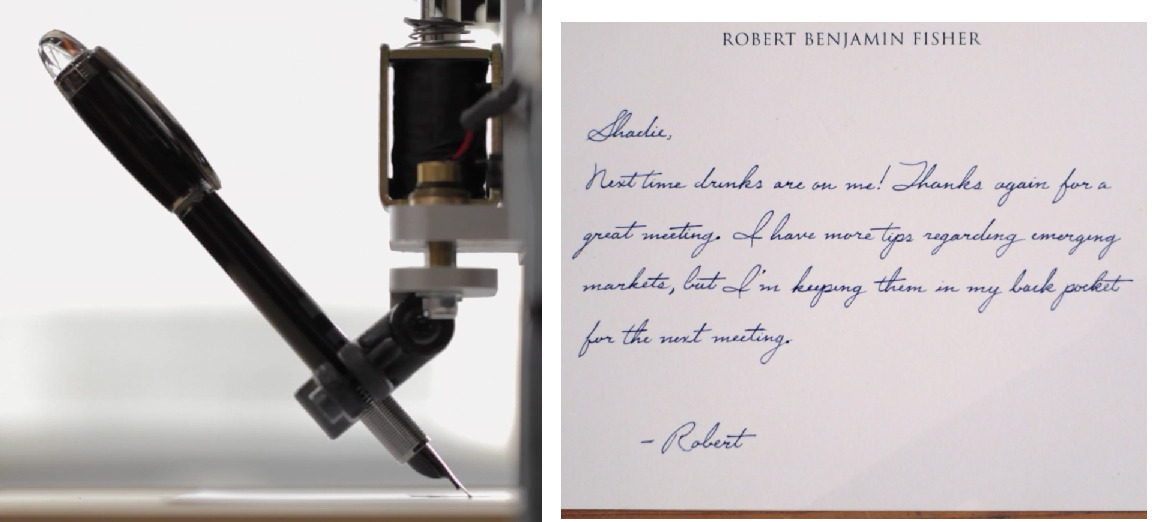 ROBERT BENJAMIN FISHER
Shadie,
Next time drinks are on me! Thanks again for a
great meeting. I have more tips regarding emerging
markets, but I'm keeping them in my back pocket
for the next meeting.
- Robert